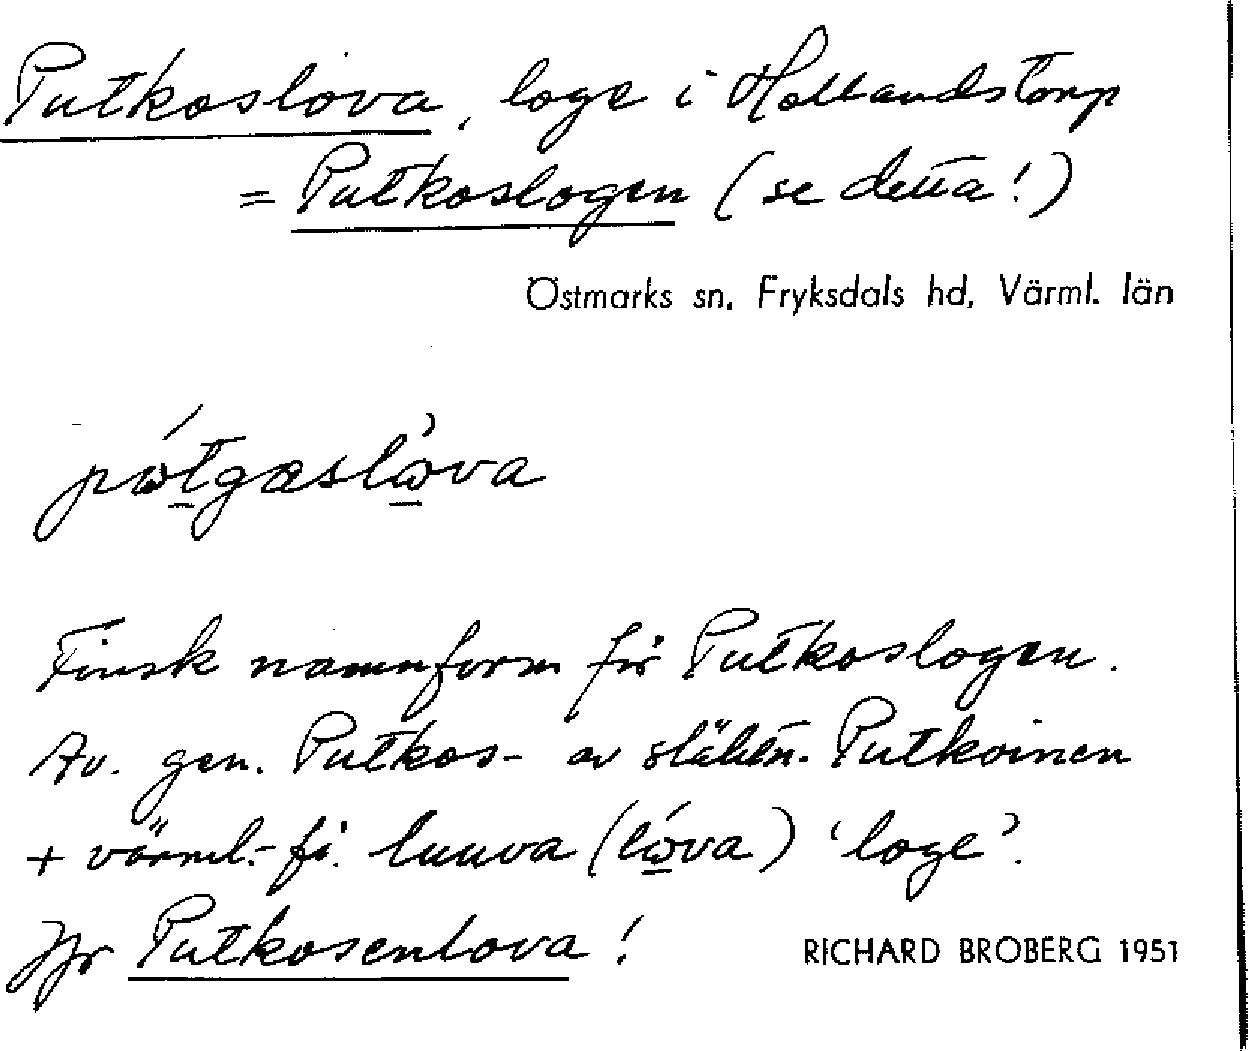 Putkoslova, loge i Hollandstorp
= Putkoslogen (se detta!)
Östmarks sn, Fryksdals hd, Värml. län
pώtgaslὼva
Finsk namnform för Putkoslogen.
Av. gen. Putkos- av släktn. Putkoinen
+ värml.-fi. luuva (lώva) 'loge'.
Jfr Putkosenlova!
RICHARD BROBERG 1951